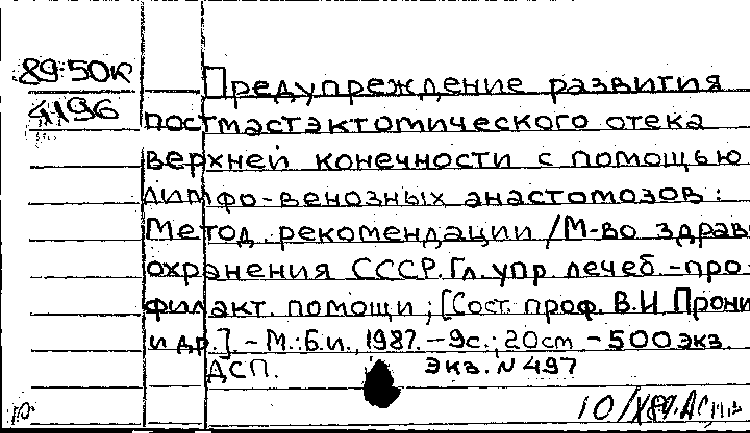 89-50к
4196
Предупреждение развития
постмастэктомического отека
верхней конечности с помощью
лимфо-венозных анастомозов:
Метод. рекомендации / М-во здрав
охранения СССР. Гл. упр. лечеб.-про-
филакт. помощи; [Сост. проф. В.И. Прони
и др.]. - М.: Б.и., 1987. - 9с.; 20см - 500 экз.
ДСП. Экз. N 497